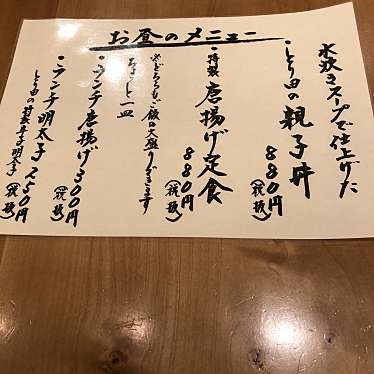 お昼のメニュー
水炊きスープで仕上げた
・とり田の親子丼
880円
(税抜)
・特製 唐揚げ定食
880円
(税抜)
※どちらもご飯の大盛りできます
ちょっと一皿
・ランチ唐揚げ300円
(税抜)
・ランチ明太子 250円
とり田の特製辛子明太子
(税抜)